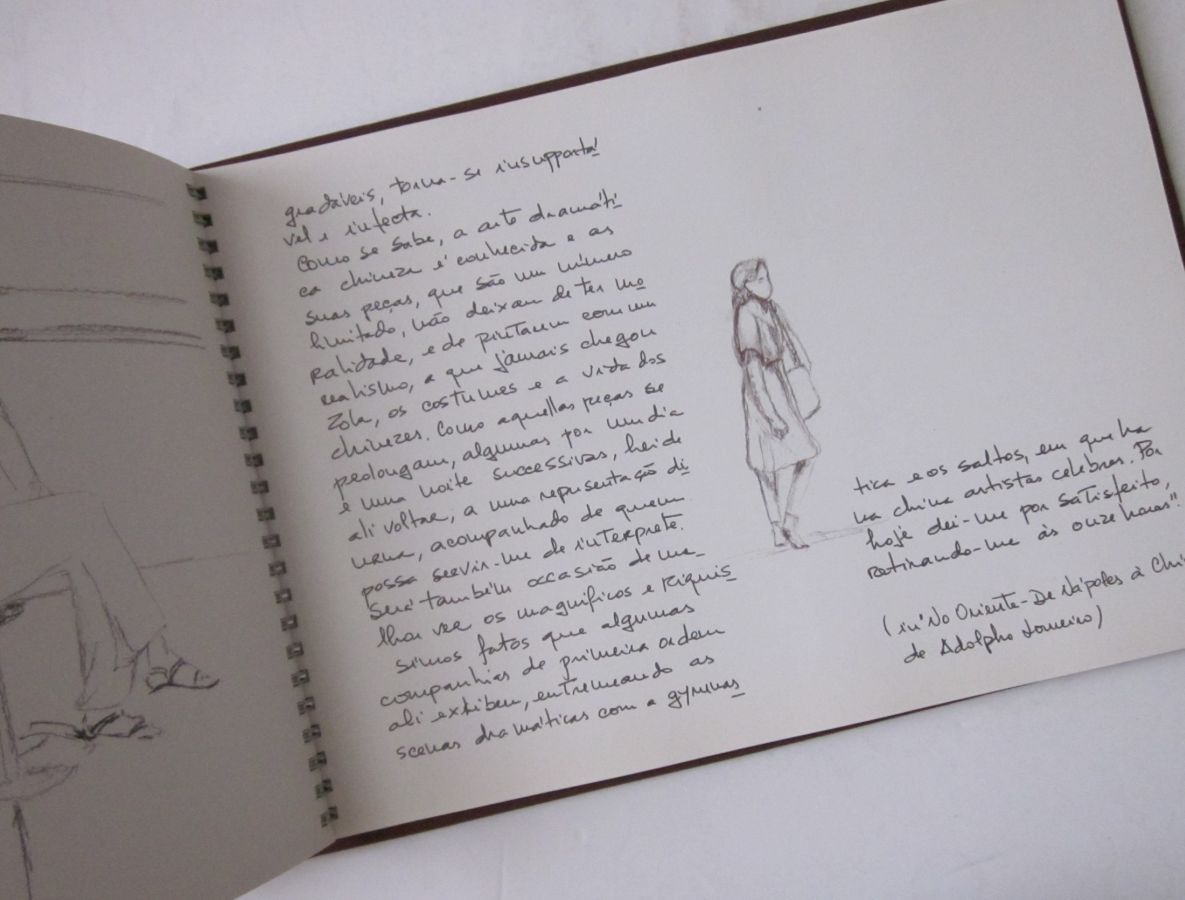 gradáveis, torna-se insupportá
vel e infecta.
Como se sabe, a arte dramáti
ca chineza é conhecida e as
suas peças, que são um número
limitado, não deixam de ter mo
ralidade, e de pintarem com um
realismo, a que jamais chegou
Zola, os costumes e a vida dos
chinezes. Como aquellas peças se
prolongam, algumas por um dia
e uma noite successivas, hei de
ali voltar, a uma representação di
urna, acompanhado de quem
possa servir-me de intérprete.
Será também occasião de me-
lhor ver os magníficos e riquis
simos fatos que algumas
companhias de primeira ordem
ali exhibem, entremeando as
scenas dramáticas com a gymnas
tica e os saltos, em que ha
na china artistas celebres. Por
hoje dei-me por satisfeito,
retirando-me às onze horas".
(in "No Oriente-De Nápoles à Chi
de Adolpho Loureiro)